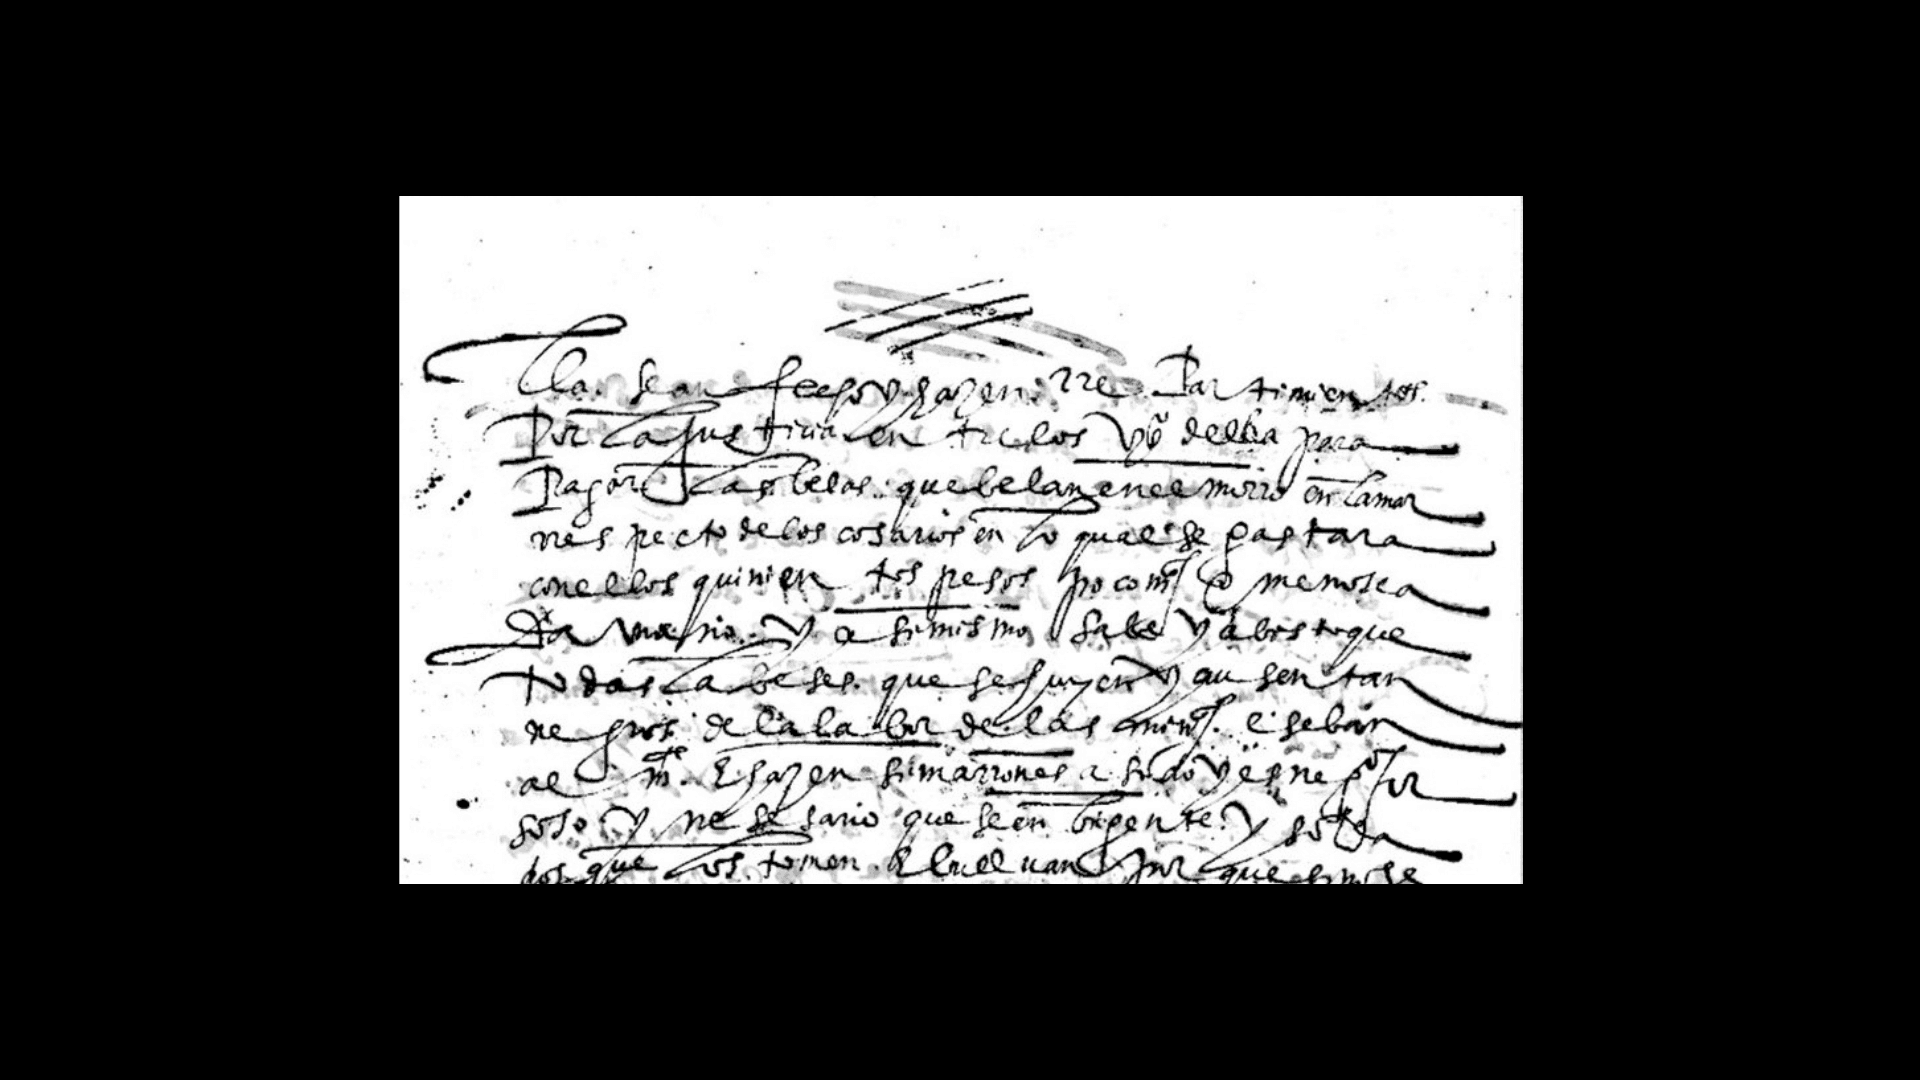 lla. se an fecho y hazen rre Partimientos.
Por la justicia en tre los vº della para
Pagar las belas. que belan en el morro en la mar
rrespecto de los cosarios en lo qual se gastara
con ellos quinien tos pesos poco mˢ o menos ca
da un año. y a si mismo sabe y a bisto que
to das la beses. que se huyen y au sen tan
ne gros de la la bor de las minˢ. e se ban
al mᵗᵉ. E hazen simarrones a sido y es ne gºˢ for
soso y ne se sario que se en bie gente. y solda
dos que los tomen. E buel uan por que si no se